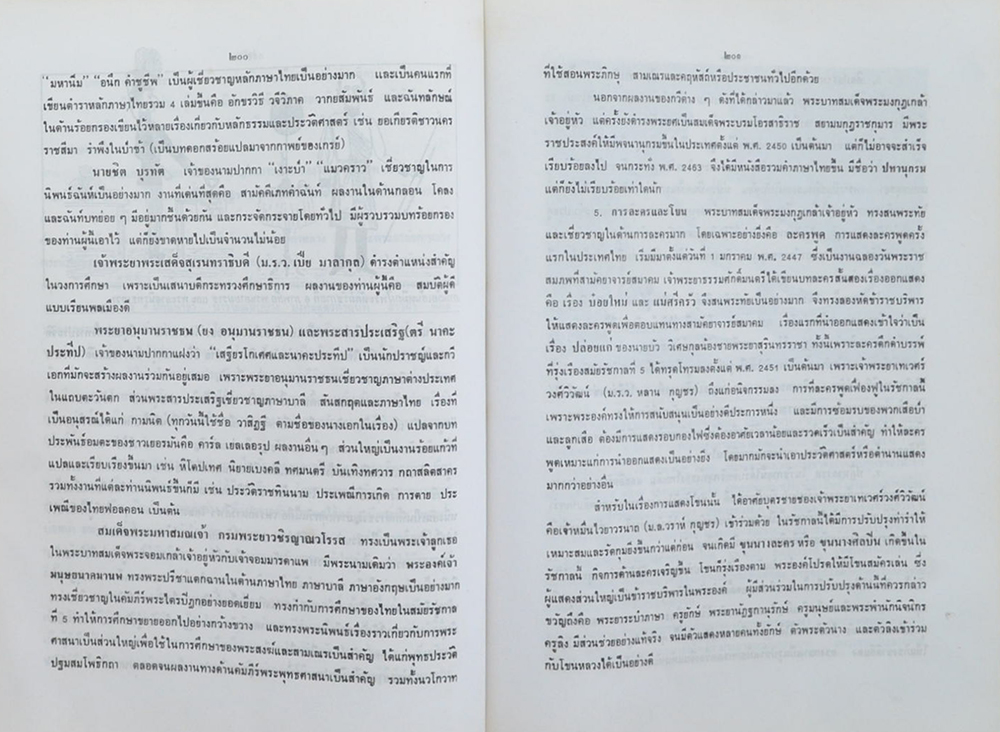 ๒๐๐
"มหานีม" "อนึก คำชูชีพ" เป็นผู้เชี่ยวชาญหลักภาษาไทยเป็นอย่างมาก และเป็นคนแรกที่
เขียนตำราหลักภาษาไทยรวม 4 เล่มขึ้นคือ อักขรวิธี วจีวิภาค วากยสัมพันธ์ และฉันทลักษณ์
ในด้านร้อยกรองเขียนไว้หลายเรื่องเกี่ยวกับหลักธรรมและประวัติศาสตร์ เช่น ยอเกียรติชาวนคร
ราชสีมา รำพึงในป่าช้า (เป็นบทดอกสร้อยแปลมาจากกาพย์ของเกรย์)
นายชิต บุรทัต เจ้าของนามปากกา "เงาะป่า" "แมวคราว" เชี่ยวชาญในการ
นิพนธ์ฉันท์เป็นอย่างมาก งานที่เด่นที่สุดคือ สามัคคีเภทคำฉันท์ ผลงานในด้านกลอน โคลง
และฉันท์บทย่อย ๆ มีอยู่มากชิ้นด้วยกัน และกระจัดกระจายโดยทั่วไป มีผู้รวบรวมบทร้อยกรอง
ของท่านผู้นี้เอาไว้ แต่ก็ยังขาดหายไปเป็นจำนวนไม่น้อย
เจ้าพระยาพระเสด็จสุเรนทราธิบดี (ม.ร.ว. เปีย มาลากุล) ดำรงตำแหน่งสำคัญ
ในวงการศึกษา เพราะเป็นเสนาบดีกระทรวงศึกษาธิการ ผลงานของท่านผู้นี้คือ สมบัติผู้ดี
แบบเรียนพลเมืองดี
พระยาอนุมานราชธน (ยง อนุมานราชธน) และพระสารประเสริฐ(ตรี นาคะ
ประทีป) เจ้าของนามปากกาแฝงว่า "เสฐียรโกเศศและนาคะประทีป" เป็นนักปราชญ์และกวี
เอกที่มักจะสร้างผลงานร่วมกันอยู่เสมอ เพราะพระยาอนุมานราชธนเชี่ยวชาญภาษาต่างประเทศ
ในแถบตะวันตก ส่วนพระสารประเสริฐเชี่ยวชาญภาษาบาลี สันสกฤตและภาษาไทย เรื่องที่
เป็นอนุสรณ์ได้แก่ กามนิต (ทุกวันนี้ใช้ชื่อ วาสิฏฐี ตามชื่อของนางเอกในเรื่อง) แปลจากบท
ประพันธ์อมตะของชาวเยอรมันคือ คาร์ล เยลเลอรุป ผลงานอื่น ๆ ส่วนใหญ่เป็นงานร้อยแก้วที่
แปลและเรียบเรียงขึ้นมา เช่น หิโตปเทศ นิยายเบงคลี ทศมนตรี บันเทิงทศวาร กถาสลิตสาคร
รวมทั้งงานที่แต่ละท่านนิพนธ์ขึ้นก็มี เช่น ประวัติราชทินนาม ประเพณีการเกิด การตาย ประ
เพณีของไทยฟอลคอน เป็นต้น
สมเด็จพระมหาสมณเจ้า กรมพระยาวชิรญาณวโรรส ทรงเป็นพระเจ้าลูกเธอ
ในพระบาทสมเด็จพระจอมเกล้าเจ้าอยู่หัวกับเจ้าจอมมารดาแพ มีพระนามเดิมว่า พระองค์เจ้า
มนุษยนาคมานพ ทรงพระปรีชาแตกฉานในด้านภาษาไทย ภาษาบาลี ภาษาอังกฤษเป็นอย่างมาก
ทรงเชี่ยวชาญในคัมภีร์พระไตรปิฎกอย่างยอดเยี่ยม ทรงกำกับการศึกษาของไทยในสมัยรัชกาล
ที่ 5 ทำให้การศึกษาขยายออกไปอย่างกว้างขวาง และทรงพระนิพนธ์เรื่องราวเกี่ยวกับการพระ
ศาสนาเป็นส่วนใหญ่เพื่อใช้ในการศึกษาของพระสงฆ์และสามเณรเป็นสำคัญ ได้แก่พุทธประวัติ
ปฐมสมโพธิกถา ตลอดจนผลงานทางด้านคัมภีร์พระพุทธศาสนาเป็นสำคัญ รวมทั้งนวโกวาท
๒๐๑
ที่ใช้สอนพระภิกษุ สามเณรและคฤหัสถ์หรือประชาชนทั่วไปอีกด้วย
นอกจากผลงานของกวีต่าง ๆ ดังที่ได้กล่าวมาแล้ว พระบาทสมเด็จพระมงกุฎเกล้า
เจ้าอยู่หัว แต่ครั้งยังดำรงพระยศเป็นสมเด็จพระบรมโอรสาธิราช สยามมกุฎราชกุมาร มีพระ
ราชประสงค์ให้มีพจนานุกรมขึ้นในประเทศตั้งแต่ พ.ศ. 2450 เป็นต้นมา แต่ก็ไม่อาจจะสำเร็จ
เรียบร้อยลงไป จนกระทั่ง พ.ศ. 2463 จึงได้มีหนังสือรวมคำภาษาไทยขึ้น มีชื่อว่า ปทานุกรม
แต่ก็ยังไม่เรียบร้อยเท่าใดนัก
5. การละครและโขน พระบาทสมเด็จพระมงกุฎเกล้าเจ้าอยู่หัว ทรงสนพระทัย
และเชี่ยวชาญในด้านการละครมาก โดยเฉพาะอย่างยิ่งคือ ละครพูด การแสดงละครพูดครั้ง
แรกในประเทศไทย เริ่มมีมาตั้งแต่วันที่ 1 มกราคม พ.ศ. 2447 ซึ่งเป็นงานฉลองวันพระราช
สมภพที่สามัคยาจารย์สมาคม เจ้าพระยาธรรมศักดิ์มนตรีได้เขียนบทละครสั้นสองเรื่องออกแสดง
คือ เรื่อง บ๋อยใหม่ และ แม่ศรีครัว จึงสนพระทัยเป็นอย่างมาก จึงทรงลองหัดข้าราชบริพาร
ให้แสดงละครพูดเพื่อตอบแทนทางสามัคยาจารย์สมาคม เรื่องแรกที่นำออกแสดงเข้าใจว่าเป็น
เรื่อง ปล่อยแก่ ของนายบัว วิเศษกุลน้องชายพระยาสุรินทรราชา ทั้งนี้เพราะละครดึกดำบรรพ์
ที่รุ่งเรืองสมัยรัชกาลที่ 5 ได้ทรุดโทรมลงตั้งแต่ พ.ศ. 2451 เป็นต้นมา เพราะเจ้าพระยาเทเวศร์
วงศ์วิวัฒน์ (ม.ร.ว. หลาน กุญชร) ถึงแก่อนิจกรรมลง การที่ละครพูดเฟื่องฟูในรัชกาลนี้
เพราะพระองค์ทรงให้การสนับสนุนเป็นอย่างดีประการหนึ่ง และมีการซ้อมรบของพวกเสือป่า
และลูกเสือ ต้องมีการแสดงรอบกองไฟซึ่งต้องอาศัยเวลาน้อยและรวดเร็วเป็นสำคัญ ทำให้ละคร
พูดเหมาะแก่การนำออกแสดงเป็นอย่างยิ่ง โดยมากมักจะนำเอาประวัติศาสตร์หรือตำนานแสดง
มากกว่าอย่างอื่น
สำหรับในเรื่องการแสดงโขนนั้น ได้อาศัยบุตรชายของเจ้าพระยาเทเวศร์วงศ์วิวัฒน์
คือเจ้าหมื่นไวยวรนาถ (ม.ล.วราห์ กุญชร) เข้าร่วมด้วย ในรัชกาลนี้ได้มีการปรับปรุงท่ารำให้
เหมาะสมและรัดกุมยิ่งขึ้นกว่าแต่ก่อน จนเกิดมี ขุนนางละคร หรือ ขุนนางศิลปิน เกิดขึ้นใน
รัชกาลนี้ กิจการด้านละครเจริญขึ้น โขนก็รุ่งเรืองตาม พระองค์โปรดให้มีโขนสมัครเล่น ซึ่ง
ผู้แสดงส่วนใหญ่เป็นข้าราชบริพารในพระองค์ ผู้มีส่วนร่วมในการปรับปรุงด้านนี้ที่ควรกล่าว
ขวัญถึงคือ พระยาระบำภาษา ครูยักษ์ พระยานัฏกานุรักษ์ ครูมนุษย์และพระพำนักนัจนิกร
ครูลิง มีส่วนช่วยอย่างแท้จริง จนมีตัวแสดงหลายคนทั้งยักษ์ ตัวพระตัวนาง และตัวลิงเข้าร่วม
กับโขนหลวงได้เป็นอย่างดี